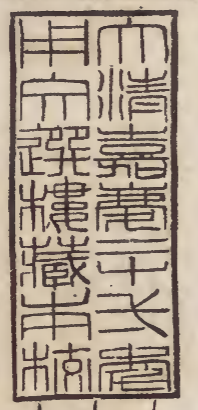 大清嘉慶二十
用文選樓藏本校